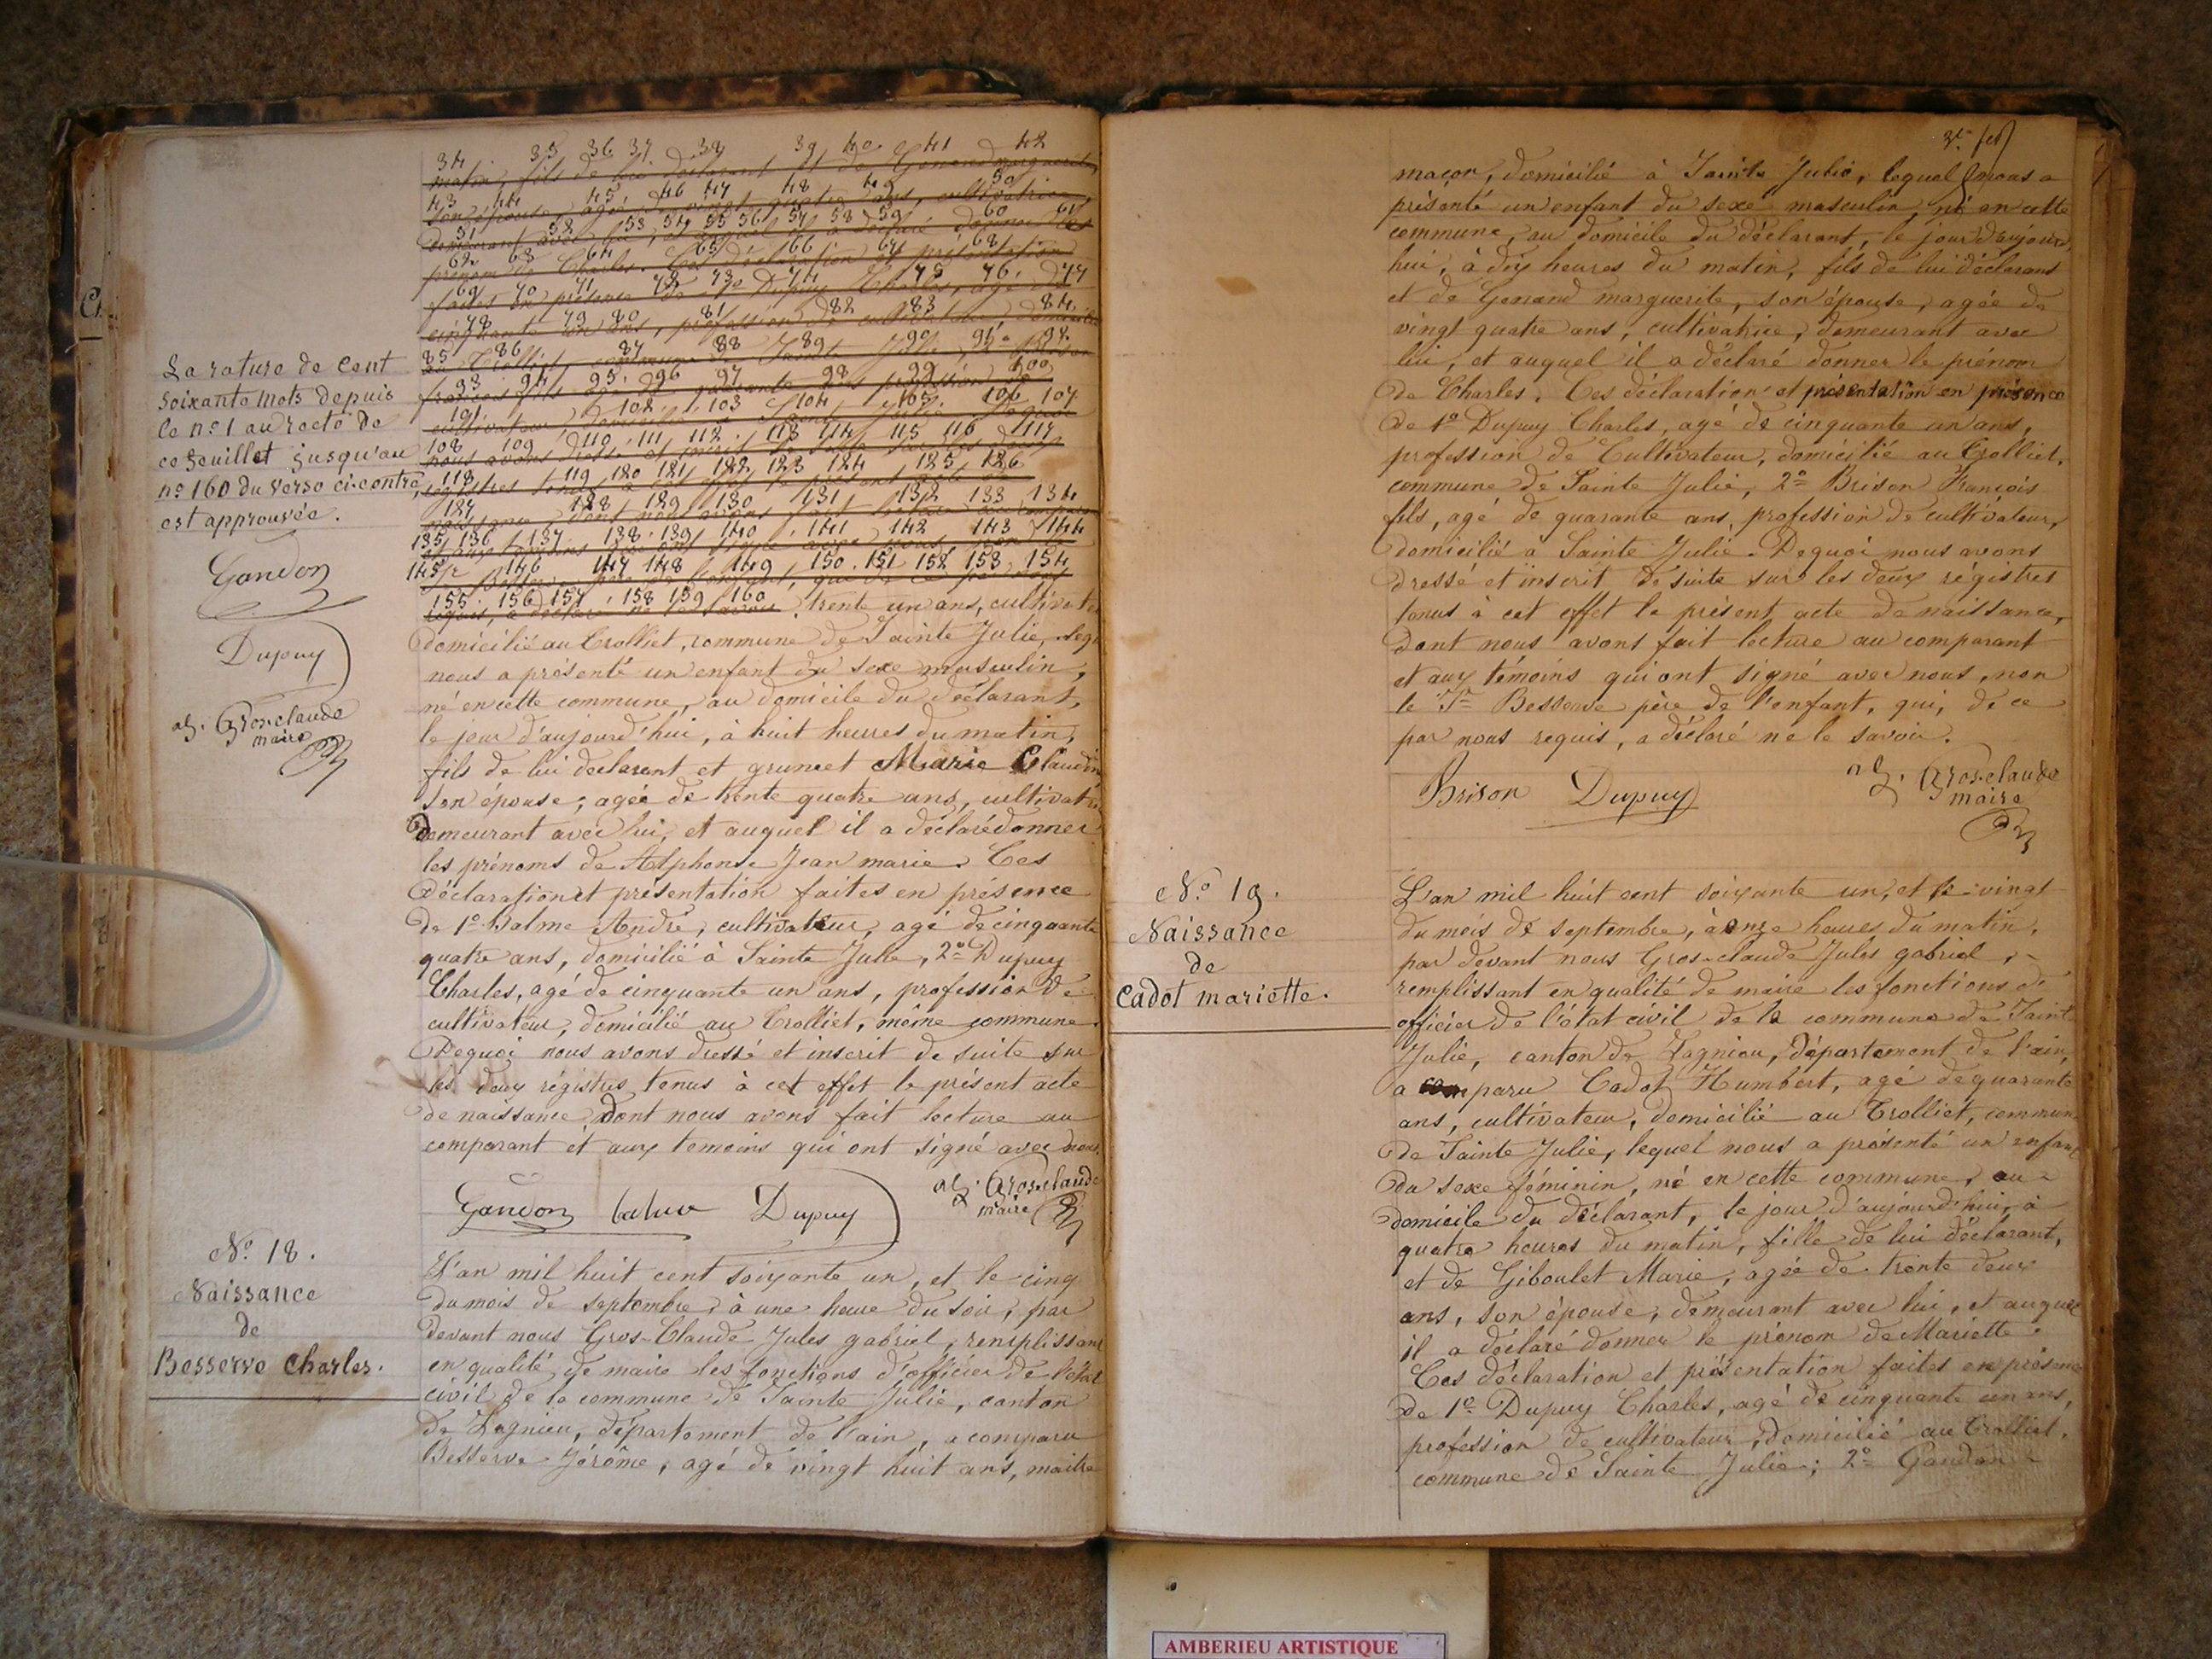 34 35 36 37 38 39 40 41 42
matin, fils de lui déclarant et de Genand marguerite,
43 44 45 46 47 48 49 50
son épouse, agée de vingt quatre ans, cultivatrice,
51 52 53 54 55 56 57 58 59 60 61
demeurant avec lui, et auquel il a déclaré donner les
62 63 64 65 66 67 68
prénom de Charles. Ces déclaration et présentation
69 70 71 72 73 74 75 76 77
faites en présence de 1º Dupuy Charles, agé de
78 79 80 81 82 83 84
cinquante un ans, profession de cultivateur, domicilié
85 86 87 88 89 90 91 92
au Trolliet, commune de Sainte Julie, 2º Brison
93 94 95 96 97 98 99 100
françois fils, agé de quarante ans, profession de
101 102 103 104 105 106 107
cultivateur, domicilié à Sainte Julie. Dequoi
108 109 110 111 112 113 114 115 116 117
nous avons dressé et inscrit de suite sur les deux
118 119 120 121 122 123 124 125 126
régistres tenus à cet effet le présent acte de
127 128 129 130 131 132 133 134
naissance, dont nous avons fait lecture au comparant
135 136 137 138 139 140 141 142 143 144
et aux témoins qui ont signé avec nous, non le
145 146 147 148 149 150 151 152 153 154
Sr Besserve père de l'enfant, qui, de ce par nous
155 156 157 158 159 160
requis, a déclaré ne le savoir. trente un ans, cultivate
domicilié au Trolliet, commune de Sainte Julie, leq
nous a présenté un enfant du sexe masculin,
né en cette commune, au domicile du déclarant,
le jour d'aujourd'hui, à huit heures du matin,
fils de lui déclarant et grumet Marie Claudin
son épouse, agée de trente quatre ans, cultivatri
demeurant avec lui, et auquel il a déclaré donner
les prénoms de Alphonse Jean marie. Ces
déclaration et présentation faites en présence
de 1º Balme André, cultivateur, agé de cinquante
quatre ans, domicilié à Sainte Julie, 2º Dupuy
Charles, agé de cinquante un ans, profession de
cultivateur, domicilié au Trolliet, même commune.
Dequoi nous avons dressé et inscrit de suite sur
les deux régistres tenus à cet effet le présent acte
de naissance, dont nous avons fait lecture au
comparant et aux temoins qui ont signé avec nous.
Gandon Dupuy Grosclaude
maire
La rature de Cent
soixante mots depuis
le nº 1 au recto de
ce feuillet jusqu'au
nº 160 du verso ci-contre,
est approuvée.
Gandon
Dupuy
Grosclaude
maire
Nº 18.
Naissance
de
Besserve Charles.
L'an mil huit cent soixante un, et le cinq
du mois de septembre, à une heure du soir, par
devant nous Gros-Claude Jules gabriel, remplissant
en qualité de maire les fonctions d'officier de l'état
civil de la commune de Sainte Julie, canton
de Lagnieu, département de l'ain, a comparu
Besserve Jérôme, agé de vingt huit ans, maitre
maçon, domicilié à Sainte Julie, lequel nous a
présenté un enfant du sexe masculin, né en cette
commune, au domicile du déclarant, le jour d'aujourd'
hui, à dix heures du matin, fils de lui déclarant
et de Genand marguerite, son épouse, agée de
vingt quatre ans, cultivatrice, demeurant avec
lui, et auquel il a déclaré donner le prénom
de Charles. Ces déclaration et présentation en présence
de 1º Dupuy Charles, agé de cinquante un ans,
profession de Cultivateur, domicilié au Trolliet,
commune de Sainte Julie, 2º Brison François
fils, agé de quarante ans, profession de cultivateur,
domicilié à Sainte Julie. Dequoi nous avons
dressé et inscrit de suite sur les deux régistres
tenus à cet effet le présent acte de naissance,
dont nous avons fait lecture au comparant
et aux témoins qui ont signé avec nous, non
le Sr Besserve père de l'enfant, qui, de ce
par nous requis, a déclaré ne le savoir.
Brison Dupuy Grosclaude
maire
Nº 19.
Naissance
de
Cadot mariette.
L'an mil huit cent soixante un, et le vingt
du mois de septembre, à onze heures du matin,
par devant nous Gros-claude Jules gabriel,
remplissant en qualité de maire les fonctions d'
officier de l'état civil de la commune de Sainte
Julie, canton de Lagnieu, département de l'ain,
a comparu Cadot Humbert, agé de quarante
ans, cultivateur, domicilié au Trolliet, commun
de Sainte Julie, lequel nous a présenté un enfant
du sexe féminin, né en cette commune, au
domicile du déclarant, le jour d'aujourd'hui, à
quatre heures du matin, fille de lui déclarant,
et de Giboulet Marie, agée de trente deux
ans, son épouse, demeurant avec lui, et auquel
il a déclaré donner le prénom de Mariette.
Ces déclaration et présentation faites en présence
de 1º Dupuy Charles, agé de cinquante un ans,
profession de cultivateur, domicilié au Trolliet,
commune de Sainte Julie; 2º Gandon
AMBERIEU ARTISTIQUE